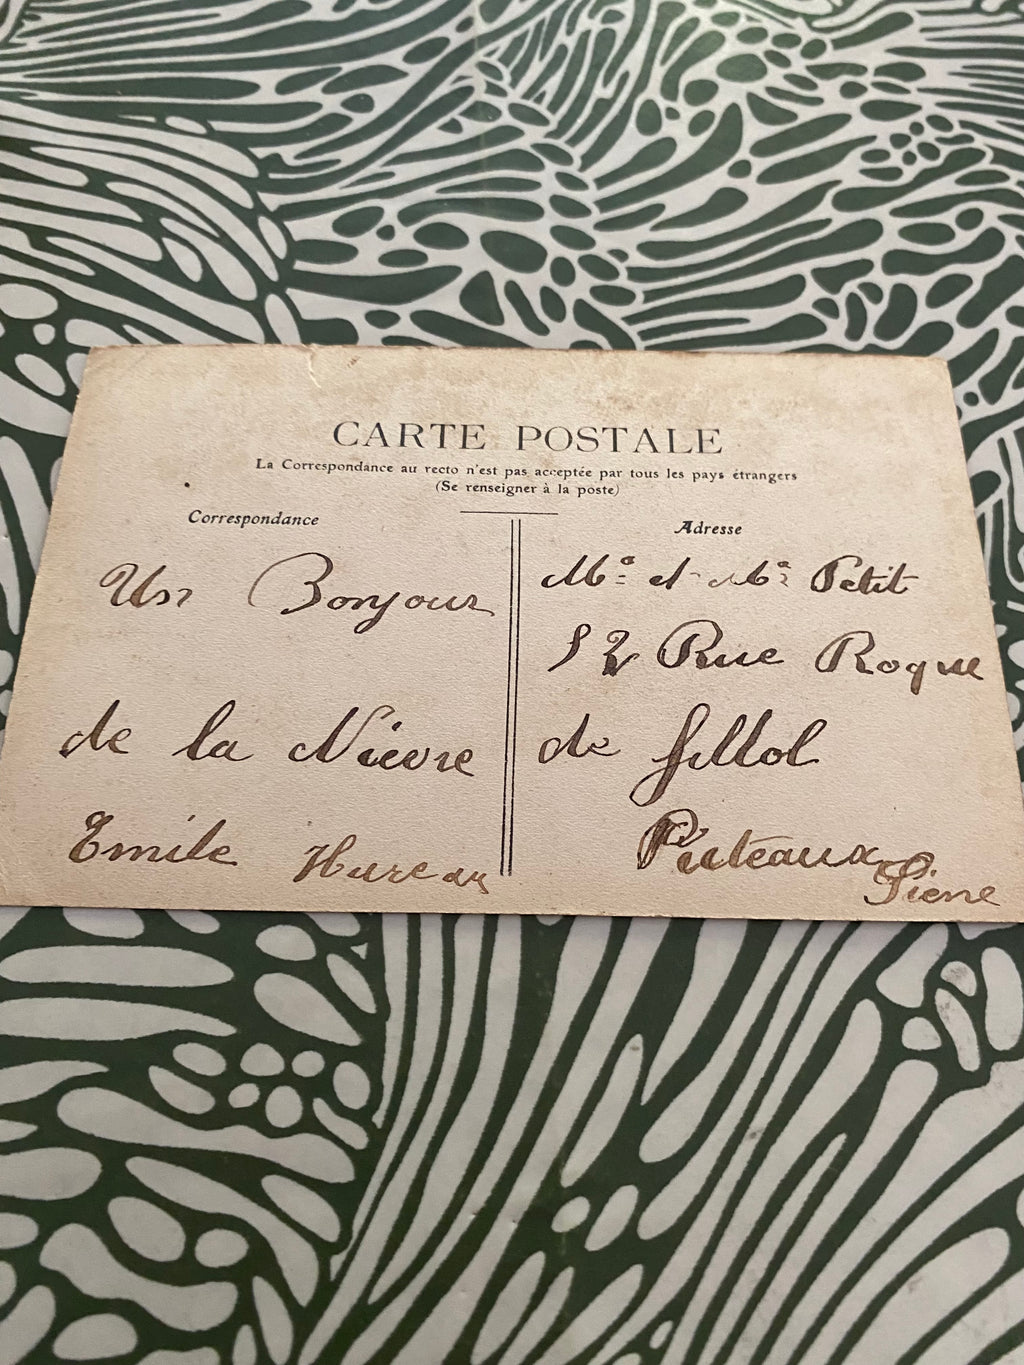 CARTE POSTALE
La Correspondance au recto n'est pas acceptée par tous les pays étrangers
(Se renseigner à la poste)
Correspondance
Un Bonjour
de la Nièvre
Emile Hureau
Adresse
Me et Mr Petit
52 Rue Roque
de fillol
Puteaux
Siene